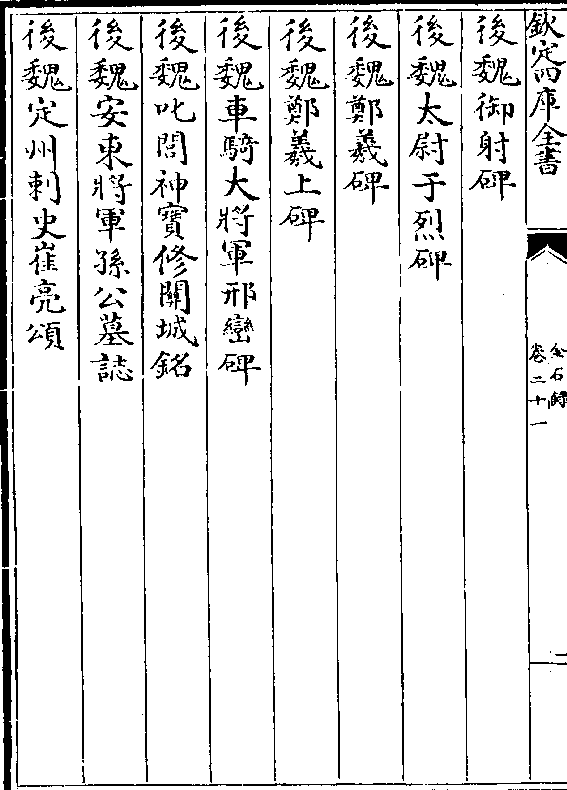 欽定四庫全書
金石録
卷二十一
二
後魏御射碑
後魏太尉于烈碑
後魏鄭羲碑
後魏鄭羲上碑
後魏車騎大將軍邢巒碑
後魏叱閭神寶修關城銘
後魏安東將軍孫公墓誌
後魏定州刺史崔亮頌